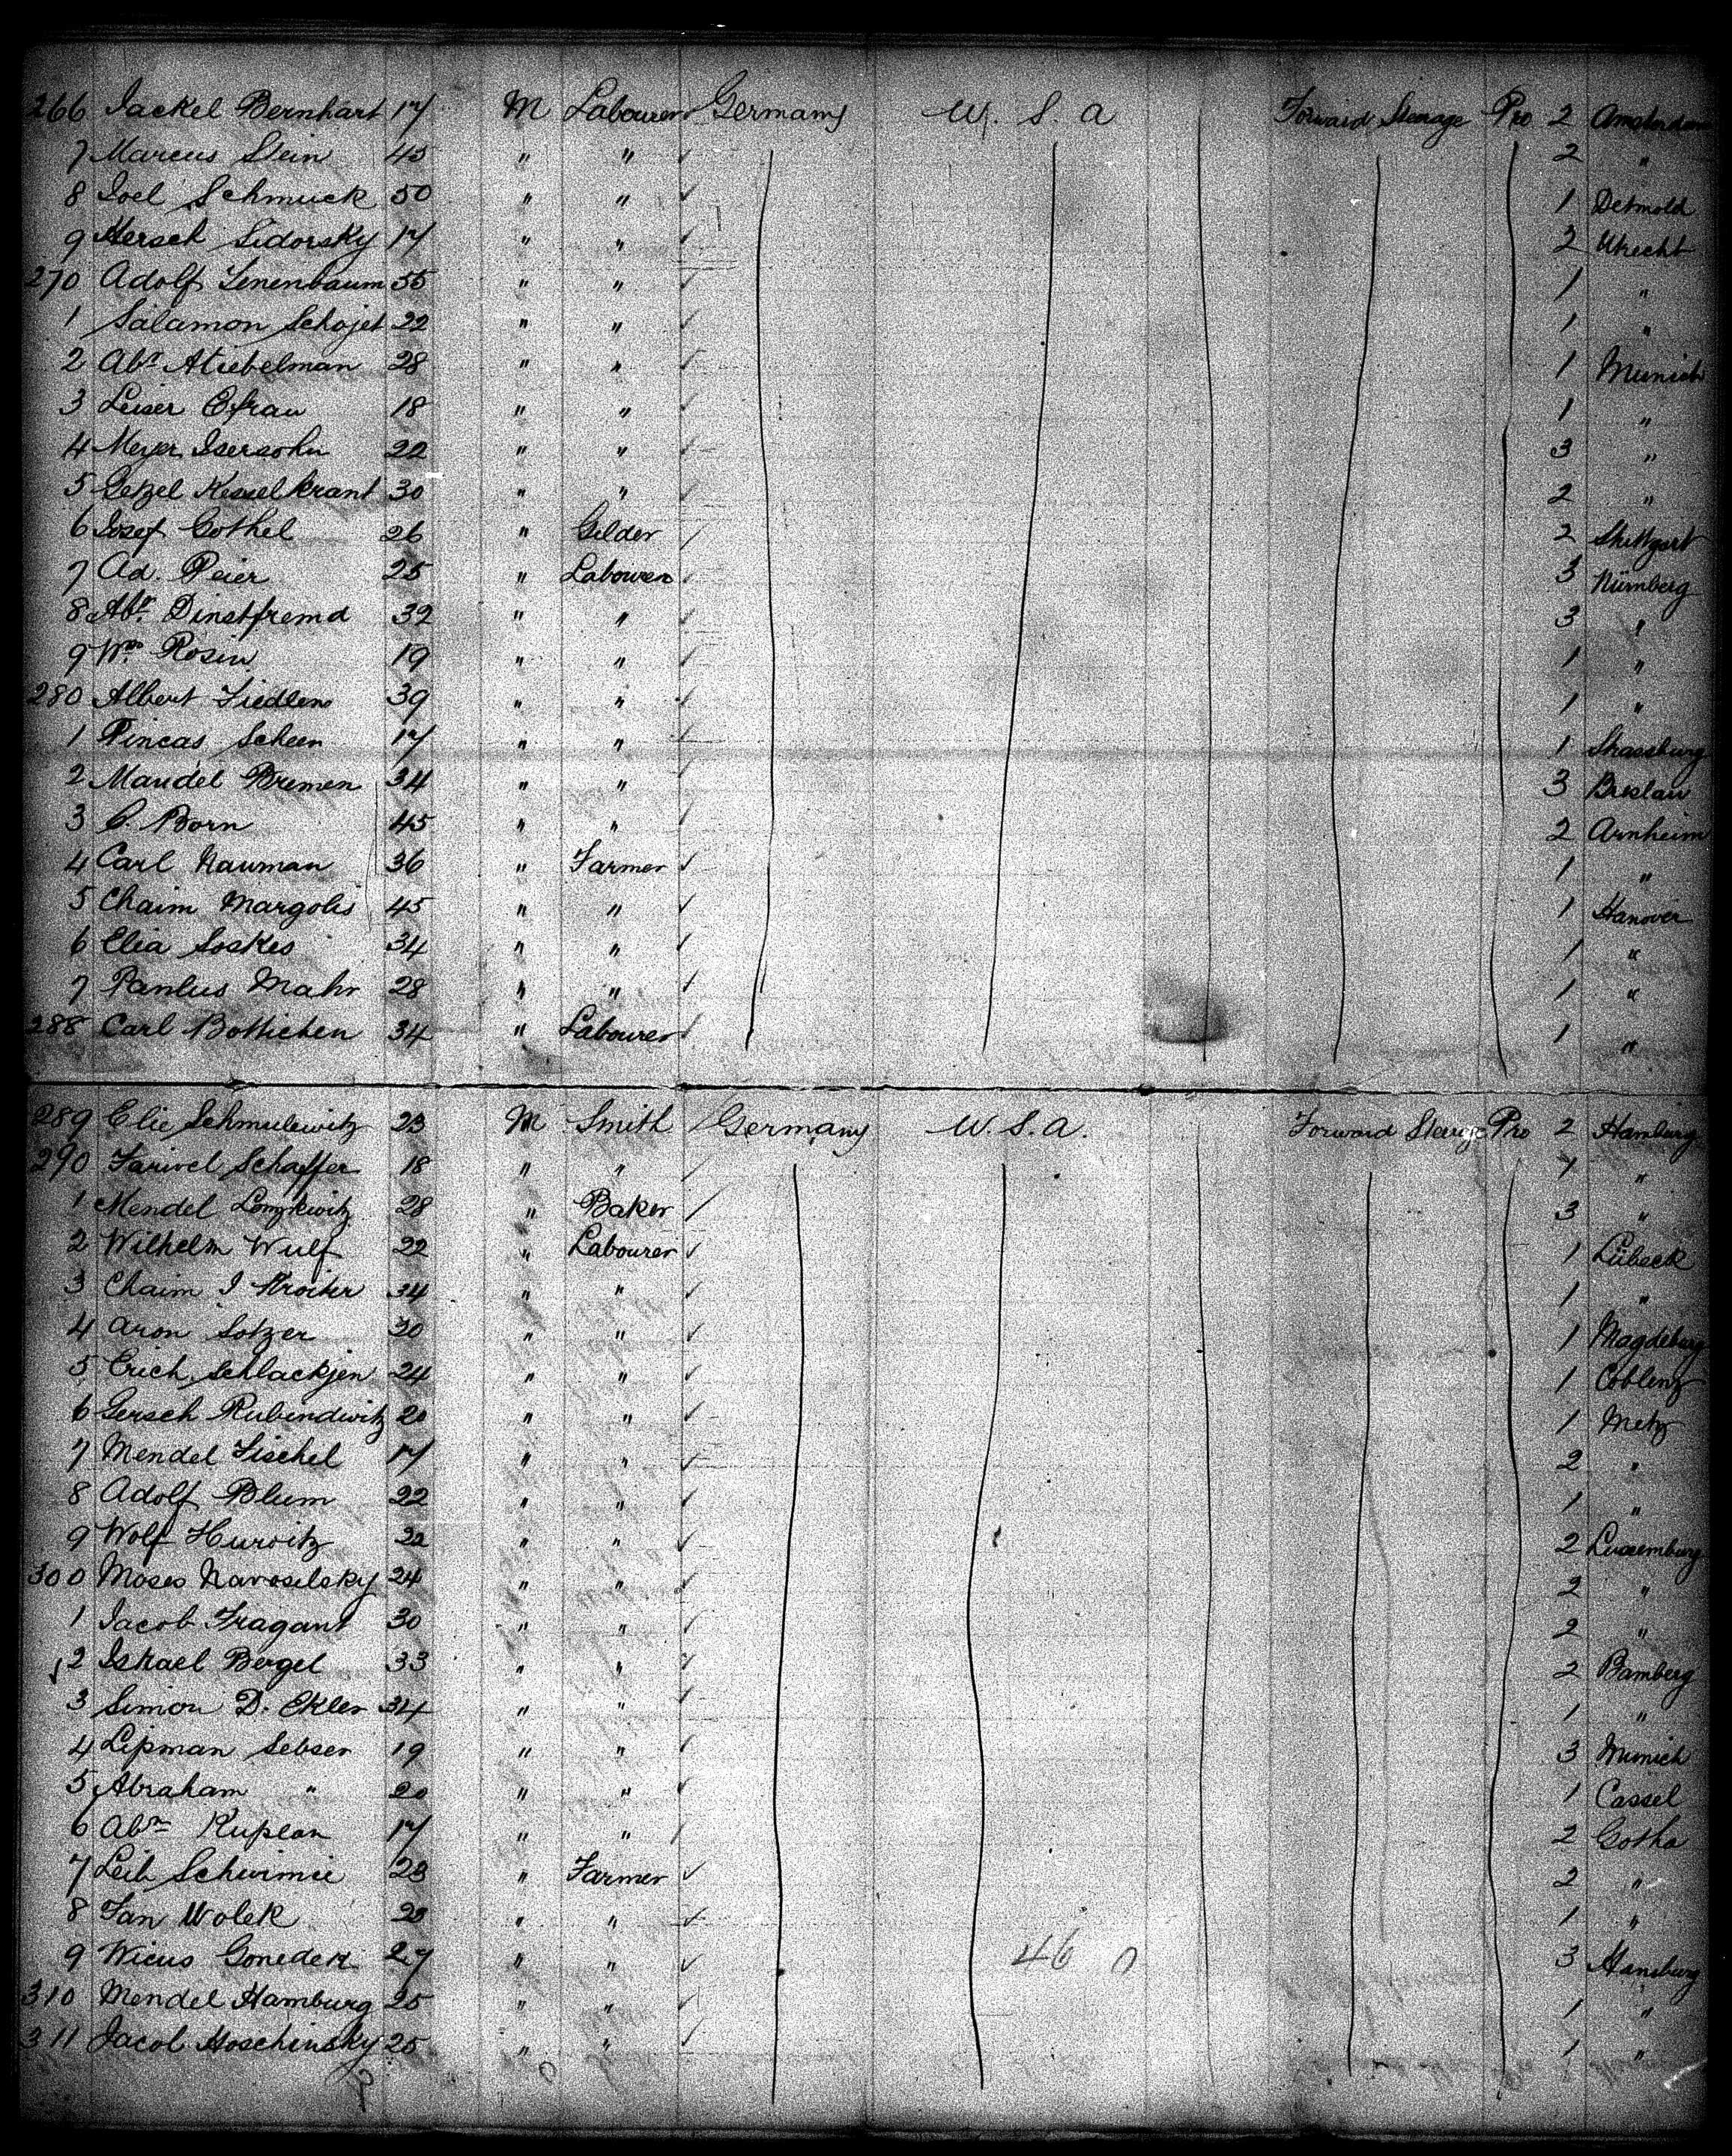 266 Jackel Bernhart 17 M Labourer Germany U. S. A Forward Steerage Pro 2 Amsterdam
7 Marcus Stein 45 " " 2 "
8 Joel Schmuck 50 " " 1 Detmold
9 Hersch Sidorsky 17 " " 2 Utrecht
270 Adolf Tenenbaum 55 " " 1 "
1 Salamon Schojet 22 " " 1 "
2 Abm 28 " " 1 Munich
3 Leiser Efrau 18 " " 1 "
4 Meyer Isersohn 22 " " 3 "
5 Getzel Kesselkrant 30 " " 2 "
6 Josef Gothel 26 " Gilder 2 Stuttgart
7 Ad. Peier 25 " Labourer 3 Nürnberg
8 Abm Dinstfremd 32 " " 3 "
9 Wm Rosin 19 " " 1 "
280 Albert Fiedler 39 " " 1 "
1 Pincas Scheer 17 " " 1 Strassburg
2 Mandel Bremen 34 " " 3 Breslau
3 C. Born 45 " " 2 Arnheim
4 Carl Nauman 36 " Farmer 1 "
5 Chaim Margolis 45 " " 1 Hanover
6 Elia Soskes 34 " " 1 "
7 Paulus Mahr 28 " " 1 "
288 Carl Bottichen 34 " Labourer 1 "
289 Elie Schmulewitz 23 M Smith Germany U. S. A. Forward Steerage Pro 2 Hamburg
290 Farivel Schaffer 18 " " 1 "
1 Mendel 28 " Baker 3 "
2 Wilhelm Wulf 22 " Labourer 1 Lübeck
3 Chaim I Stroiter 34 " " 1 "
4 Aron Sotzer 30 " " 1 Magdeburg
5 Erich Schlackjen 24 " " 1 Coblenz
6 Gersch Rubendwitz 20 " " 1 Metz
7 Mendel Fischel 17 " " 2 "
8 Adolf Blum 22 " " 1 "
9 Wolf Hurvitz 22 " " 2 Luxemburg
300 Moses Navoselsky 24 " " 2 "
1 Jacob Fragant 30 " " 2 "
2 Iskael Bergel 33 " " 2 Bamberg
3 Simon D. Ekler 34 " " 1 "
4 Lipman Sebser 19 " " 3 Munich
5 Abraham " 20 " " 1 Cassel
6 Abm Kuplan 17 " " 2 Gotha
7 Leib Schwimie 23 " Farmer 2 "
8 Jan Wolek 20 " " 1 "
9 Wicus Goneder 27 " " 46 0 3
310 Mendel Hamburg 25 " " 1 "
311 Jacob Hoschinsky 25 " " 1 "